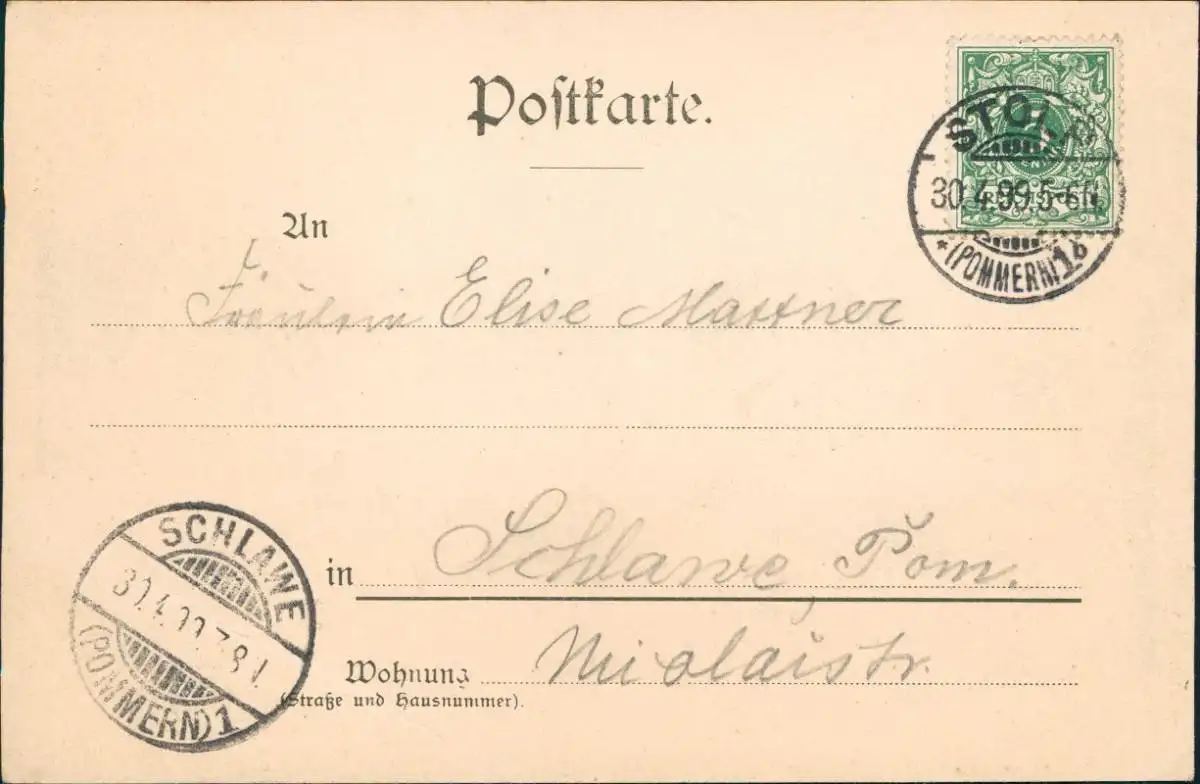 Postkarte.
STOLP
30.4.99.5-6N
* (POMMERN) 1b
An
Fräulein Elise Mattner
in Schlawe, Pom.
Wohnung Nicolaistr.
(Straße und Hausnummer).
SCHLAWE
30.4.99.7-8
(POMMERN) 1